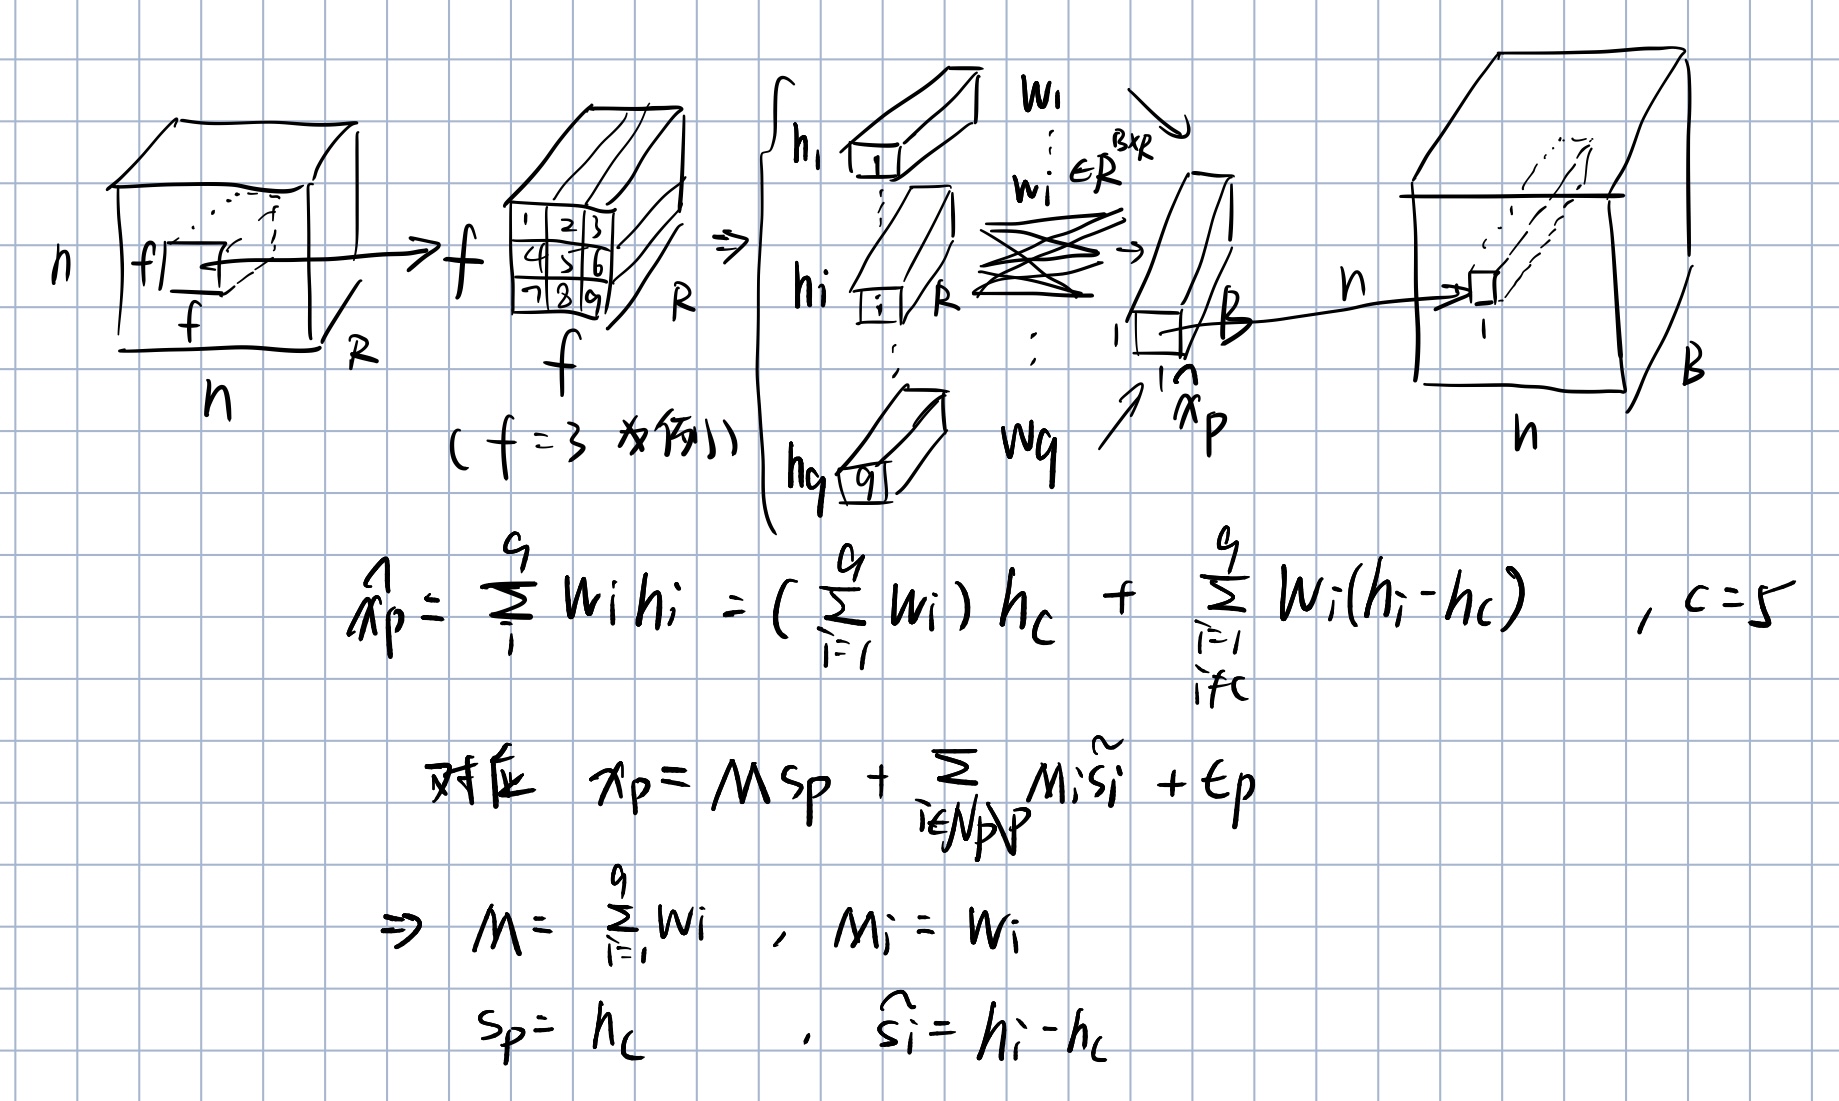 n f f n R
f 1 2 3 4 5 6 7 8 9 R f
(f=3 为例)
h₁ 1 W₁
⋮ Wᵢ ∈ R^{B×R}
hᵢ i R 1 1 B x̂ₚ
h₉ 9 W₉
n 1 B n
x̂ₚ = Σ_{i}^{9} Wᵢhᵢ = (Σ_{i=1}^{9} Wᵢ) h_c + Σ_{i=1, i≠c}^{9} Wᵢ(hᵢ-h_c) , c=5
对应 xₚ = M sₚ + Σ_{i∈Nₚ\p} Mᵢs̃ᵢ + εₚ
⇒ M = Σ_{i=1}^{9} Wᵢ , Mᵢ = Wᵢ
sₚ = h_c , s̃ᵢ = hᵢ-h_c